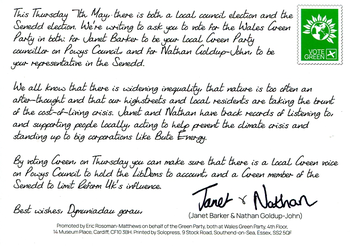 This Thursday 7th May, there is both a local council election and the
Senedd election. We're writing to ask you to vote for the Wales Green
Party in both: for Janet Barker to be your local Green Party
councillor on Powys Council and for Nathan Goldup-John, to be
your representative in the Senedd.
VOTE
GREEN
We all know that there is widening inequality, that nature is too often an
after-thought and that our highstreets and local residents are taking the brunt
of the cost-of-living crisis. Janet and Nathan have track records of listening to,
and supporting people locally, acting to help prevent the climate crisis and
standing up to big corporations like Bute Energy.
By voting Green, on Thursday you can make sure that there is a local Green voice
on Powys Council to hold the LibDems to account, and a Green member of the
Senedd to limit Reform UK's influence.
Best wishes, Dymuniadau gorau,
Janet & Nathan
(Janet Barker & Nathan Goldup-John)
Promoted by Eric Roseman-Matthews on behalf of the Green Party, both at Wales Green Party, 4th Floor,
14 Museum Place, Cardiff, CF10 3BH. Printed by Solopress, 9 Stock Road, Southend-on-Sea, Essex, SS2 5QF